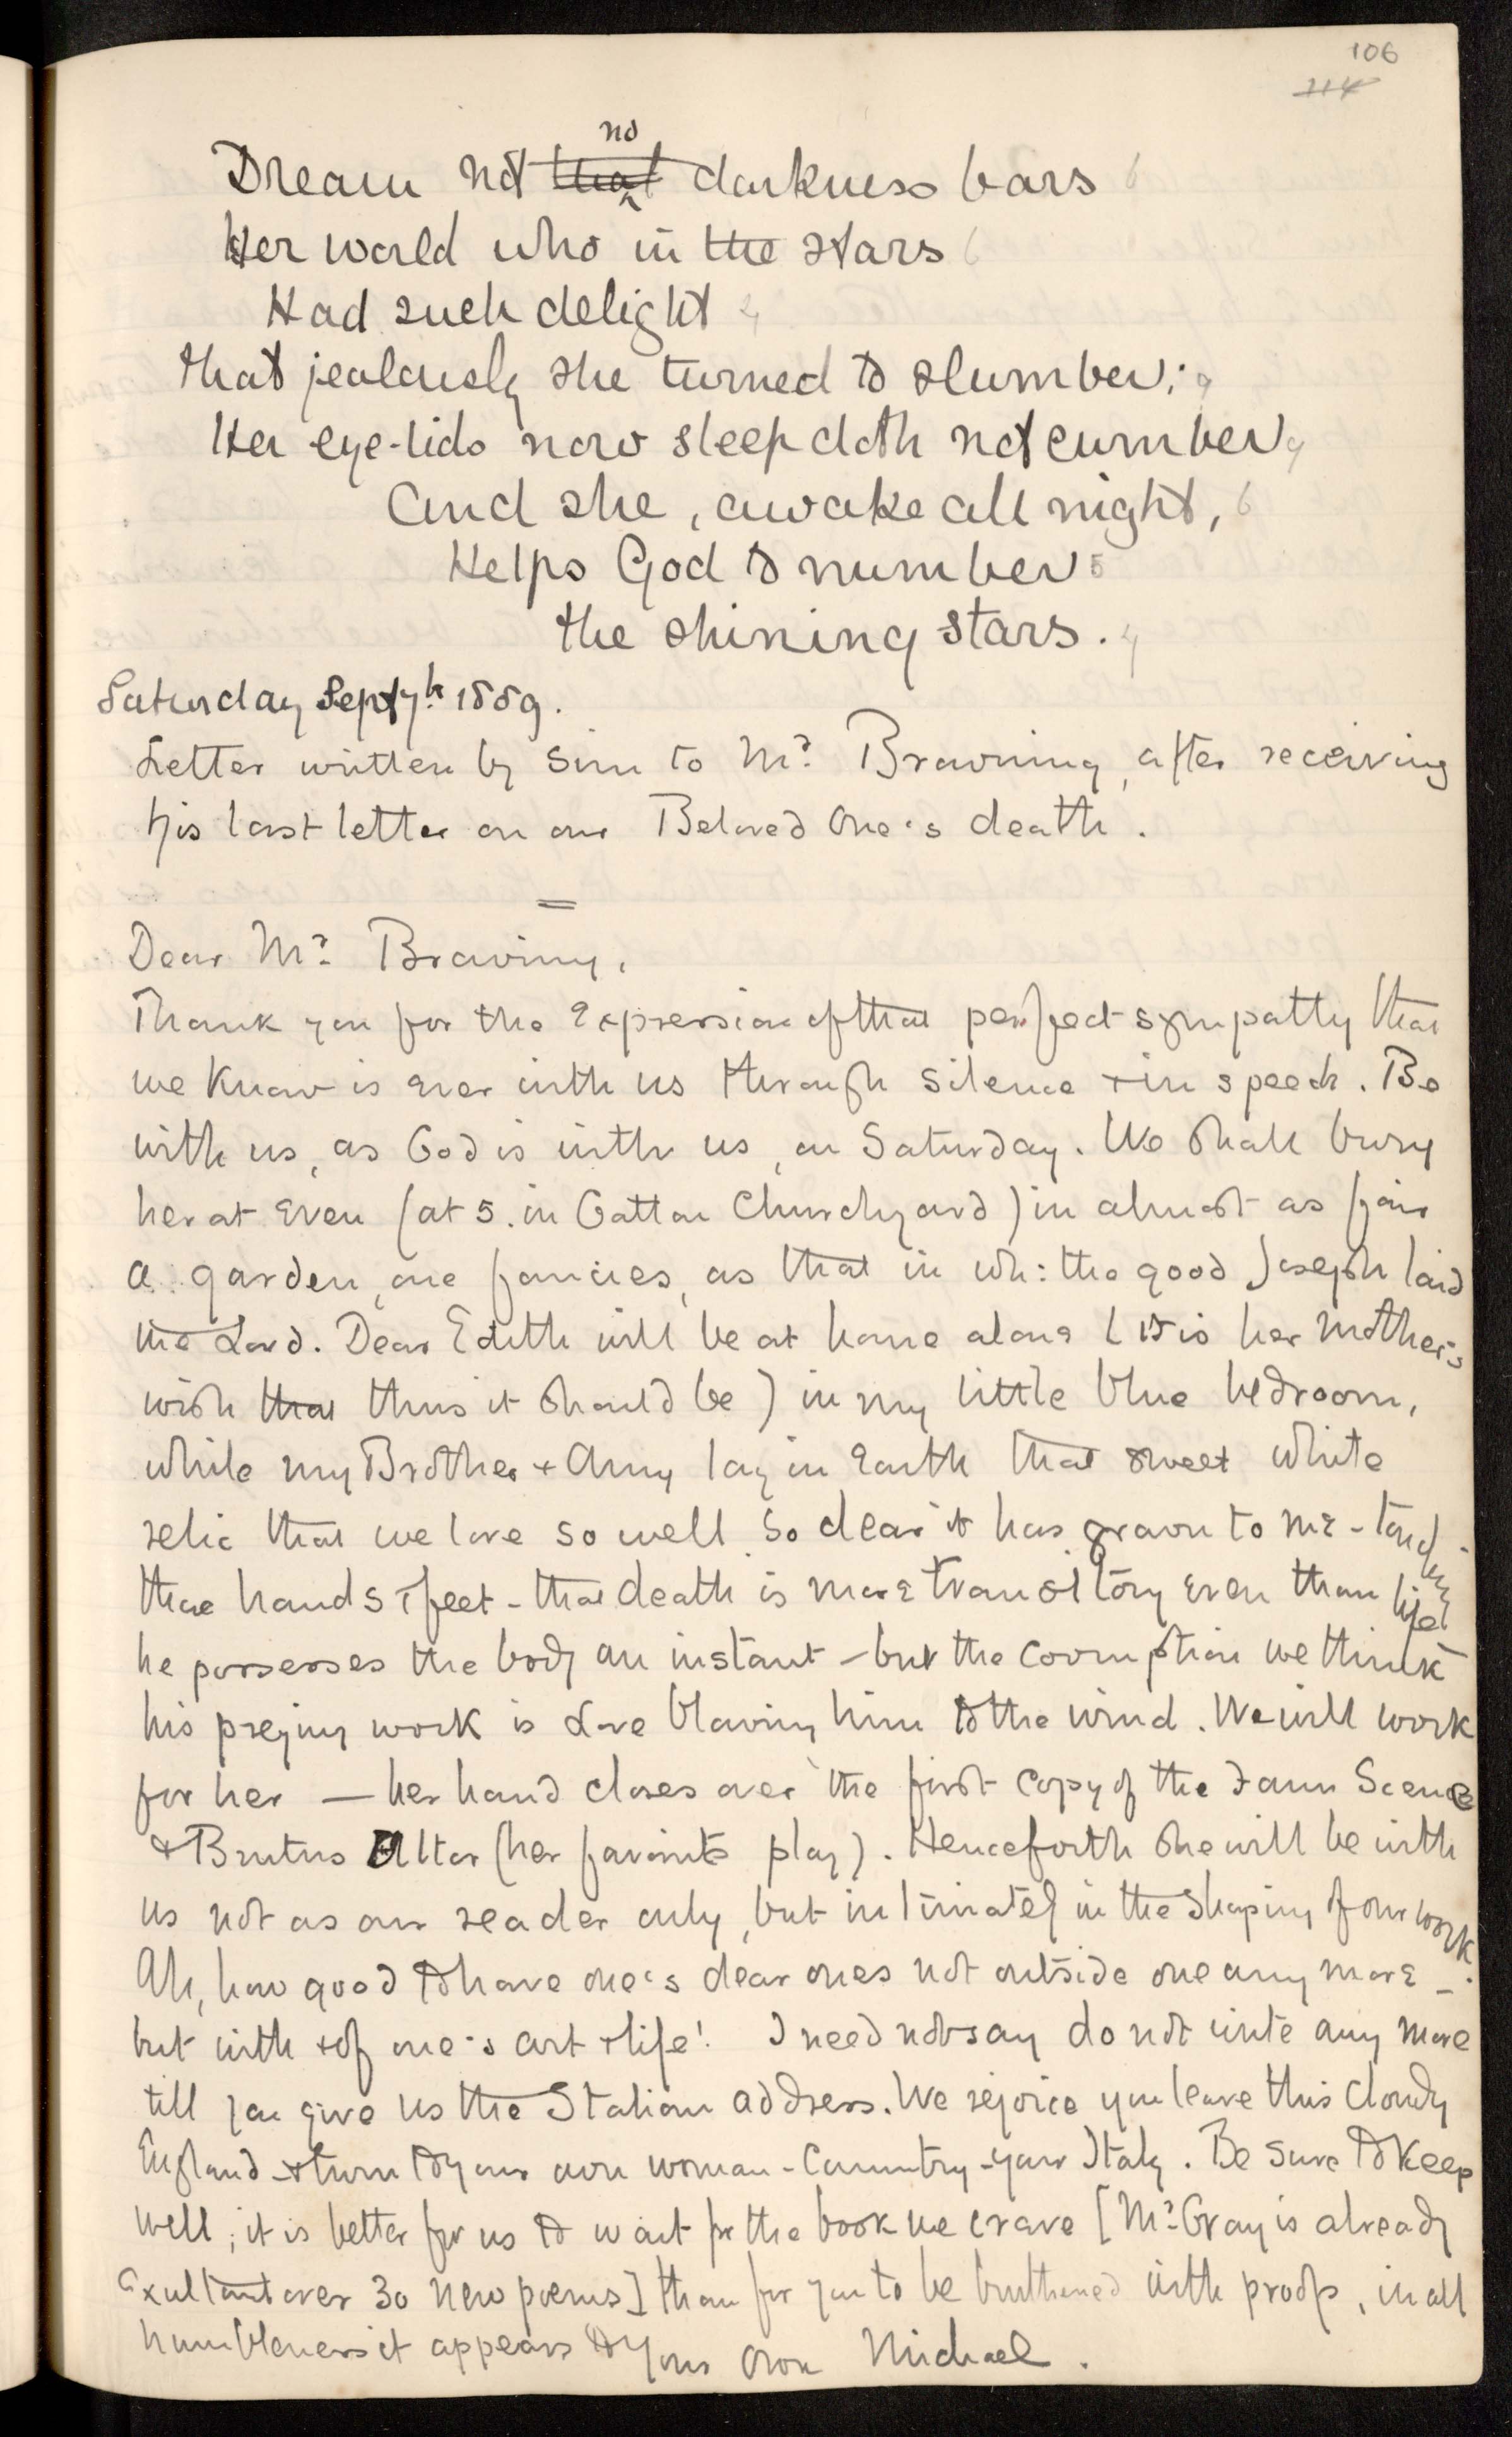 106
114
no
Dream not that darkness bars 6
Her world who in the stars 6
Had such delight 4
that jealously she turned to slumber; 9
Her eye-lids now sleep doth not cumber, 9
And she, awake all night, 6
Helps God to number 5
the shining stars. 4
Saturday Sept 7th 1889.
Letter written by Sim to Mr. Browning, after receiving
his last letter on our Beloved One's death.
Dear Mr. Browning,
Thank you for the expression of that perfect sympathy that
we know is ever with us through silence & in speech. Be
with us, as God is with us, on Saturday. We shall bury
her at even (at 5. in Gatton Churchyard) in almost as fair
a garden, one fancies, as that in wh: the good Joseph laid
the Lord. Dear Edith will be at home alone (it is her mother's
wish that thus it should be) in my little blue bedroom,
while my Brother & Amy lay in earth that sweet white
relic that we love so well. So dear it has grown to me - tending
those hands & feet - that death is more transitory even than life
he possesses the body an instant - but the corruption we think
his preying work is Love blowing him to the wind. We will work
for her — her hand closes over the first copy of the Faun Scene
& Brutus Ultor (her favourite play). Henceforth she will be with
us not as our reader only, but intimately in the shaping of our work.
Ah, how good to have one's dear ones not outside one any more -
but with & of one's art & life! I need not say do not write any more
till you give us the Italian address. We rejoice you leave this cloudy
England & turn to your own woman-country - your Italy. Be sure to keep
well; it is better for us to wait for the book we crave [Mr. Gray is already
exultant over 30 new poems] than for you to be burthened with proofs, in all
humbleness it appears to Your own Michael.